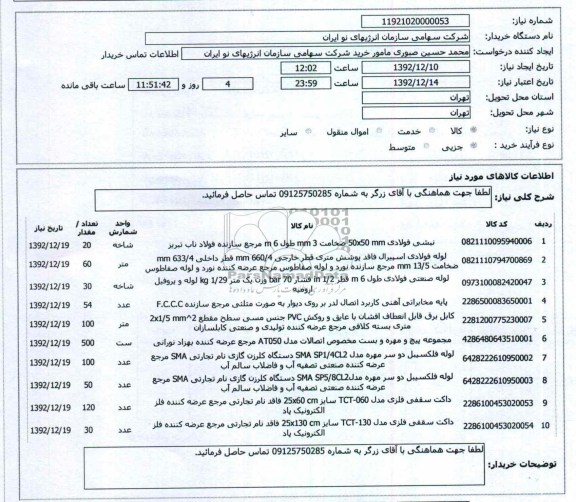 شماره نیاز: 11921020000053
نام دستگاه خریدار: شرکت سهامی سازمان انرژیهای نو ایران
ایجاد کننده درخواست: محمد حسین صبوری مامور خرید شرکت سهامی سازمان انرژیهای نو ایران اطلاعات تماس خریدار
تاریخ ایجاد نیاز: 1392/12/10 ساعت 12:02
تاریخ اعتبار نیاز: 1392/12/14 ساعت 23:59 4 روز و 11:51:42 ساعت باقی مانده
استان محل تحویل: تهران
شهر محل تحویل: تهران
نوع نیاز: کالا خدمت اموال منقول سایر
نوع فرآیند خرید : جزیی متوسط
اطلاعات کالاهای مورد نیاز
شرح کلی نیاز: لطفا جهت هماهنگی با آقای زرگر به شماره 09125750285 تماس حاصل فرمائید.
ردیف کد کالا نام کالا واحد شمارش تعداد / مقدار تاریخ نیاز
1 0821110095940006 نبشی فولادی 50x50 mm ضخامت 3 mm طول 6 m مرجع سازنده فولاد ناب تبریز شاخه 20 1392/12/19
2 0821110794700869 لوله فولادی اسپیرال فاقد پوشش متری قطر خارجی 660/4 mm قطر داخلی 633/4 mm
ضخامت 13/5 mm مرجع سازنده نورد و لوله صفاطوس مرجع عرضه کننده نورد و لوله صفاطوس متر 60 1392/12/19
3 0973100082420047 لوله صنعتی فولادی طول 6 m قطر 1/2 in فشار 70 bar وزن یک متر 1/29 kg لوله و پروفیل
ارومیه شاخه 30 1392/12/19
4 2286500083650001 پایه مخابراتی آهنی کاربرد اتصال لدر بر روی دیوار به صورت مثلثی مرجع سازنده F.C.C.C عدد 54 1392/12/19
5 2281200775230007 کابل برق قابل انعطاف افشان با عایق و روکش PVC جنس مسی سطح مقطع 2x1/5 mm^2
متری بسته کلافی مرجع عرضه کننده تولیدی و صنعتی کابلسازان متر 100 1392/12/19
6 4286480643510001 مجموعه پیچ و مهره و بست مخصوص اتصالات مدل AT050 مرجع عرضه کننده بهزاد نورانی ست 500 1392/12/19
7 6428222610950002 لوله فلکسیبل دو سر مهره مدل SMA SP1/4CL2 دستگاه کلرزن گازی نام تجارتی SMA مرجع
عرضه کننده صنعتی تصفیه آب و فاضلاب سالم آب عدد 100 1392/12/19
8 6428222610950003 لوله فلکسیبل دو سر مهره مدل SMA SP5/8CL2 دستگاه کلرزن گازی نام تجارتی SMA مرجع
عرضه کننده صنعتی تصفیه آب و فاضلاب سالم آب عدد 50 1392/12/19
9 2286100453020053 داکت سقفی فلزی مدل TCT-060 سایز 25x60 cm فاقد نام تجارتی مرجع عرضه کننده فلز
الکترونیک پاد عدد 120 1392/12/19
10 2286100453020054 داکت سقفی فلزی مدل TCT-130 سایز 25x130 cm فاقد نام تجارتی مرجع عرضه کننده فلز
الکترونیک پاد عدد 30 1392/12/19
توضیحات خریدار: لطفا جهت هماهنگی با آقای زرگر به شماره 09125750285 تماس حاصل فرمائید.